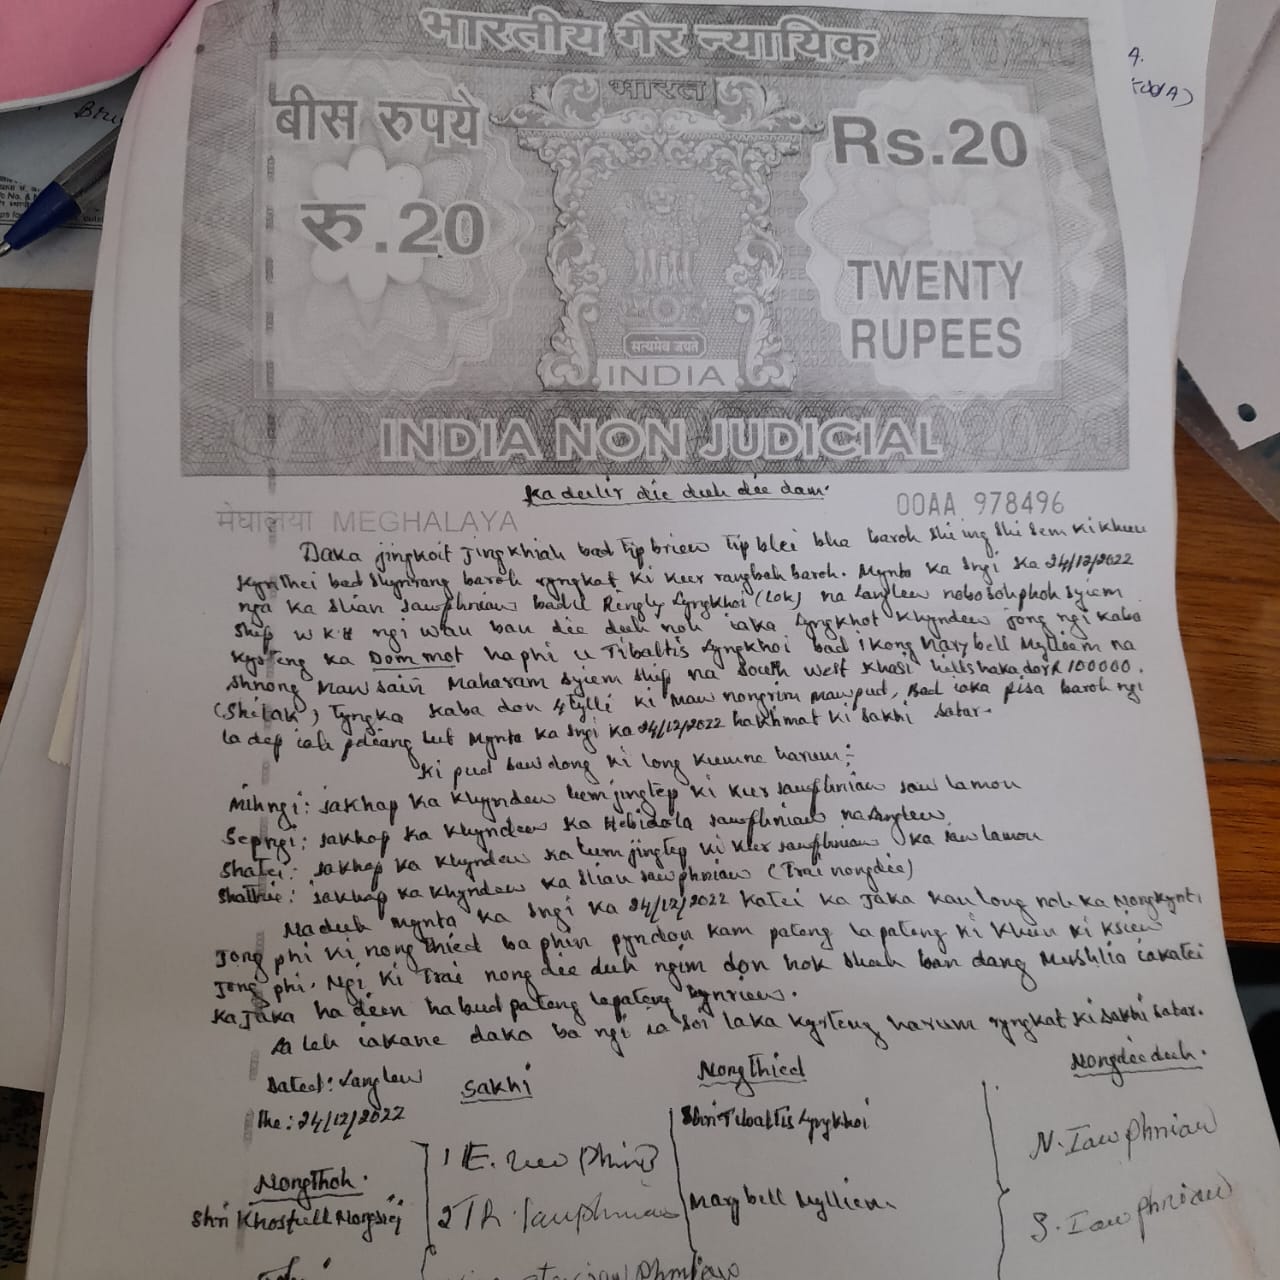 भारतीय गैर न्यायिक
भारत
बीस रुपये
Rs.20
रु.20
TWENTY
RUPEES
सत्यमेव जयते
INDIA
INDIA NON JUDICIAL
Ka dulir die duh die dam.
मेघालया MEGHALAYA
00AA 978496
Daka jingkoit jingkhiah bad tip briew tip blei bha baroh shi ing shi sem ki khun
kynthei bad shynrang baroh ryngkat ki kur rangbah baroh. Mynta ka sngi ka 24/12/2022
nga ka Slian Iawphniaw badu Ringly Lyngkhoi (Lok) na Langlew nobosohphoh syiem
ship W K H ngi wan ban die duh noh iaka Lyngkhot khyndew jong ngi kaba
kyrteng ka Dommot ha phi u Tibaltis Lyngkhoi bad i kong Marybell Mylliem na
shnong Mawsaiñ Maharam syiem ship na South West Khasi hills haka dor R 100000.
(Shi lak) Tyngka kaba don 4 tylli ki maw nongrim mawpud, Bad iaka pisa baroh ngi
la dep ioh pdiang lut mynta ka sngi ka 24/12/2022 hakhmat ki sakhi satar.
Ki pud sawdong ki long kumne harum:-
Mihngi: sakhap ka khyndew jingtep ki kur Iawphniaw Iaw lamou
Sepngi: sakhap ka khyndew ka Hebidola Iawphniaw na Langlew
Shatei: sakhap ka khyndew ka jingtep ki kur Iawphniaw ka Iaw lamou
Shathie: sakhap ka khyndew ka Slian Iawphniaw (Trai nongdie)
Naduh mynta ka sngi ka 24/12/2022 katei ka jaka kan long noh ka Nongkynti
jong phi ki nongthied ba phin pyndon kam pateng la pateng ki khun ki ksiew
jong phi. Ngi ki trai nong die duh ngim don hok shuh ban dang mushlia iakatei
ka jaka ha dien habud pateng lapateng bynriew.
La leh iakane dako ba ngi ia soi iaka kyrteng harum ryngkat ki sakhi satar.
Dated: Langlew
The: 24/12/2022
Sakhi
Nongthied
Nongdie duh.
Shri Tibaltis Lyngkhoi
N. Iawphniaw
Nongthoh.
Shri Khosfull Nongsiej
2 TR. Iawphniaw
Marybell Mylliem
S. Iawphniaw